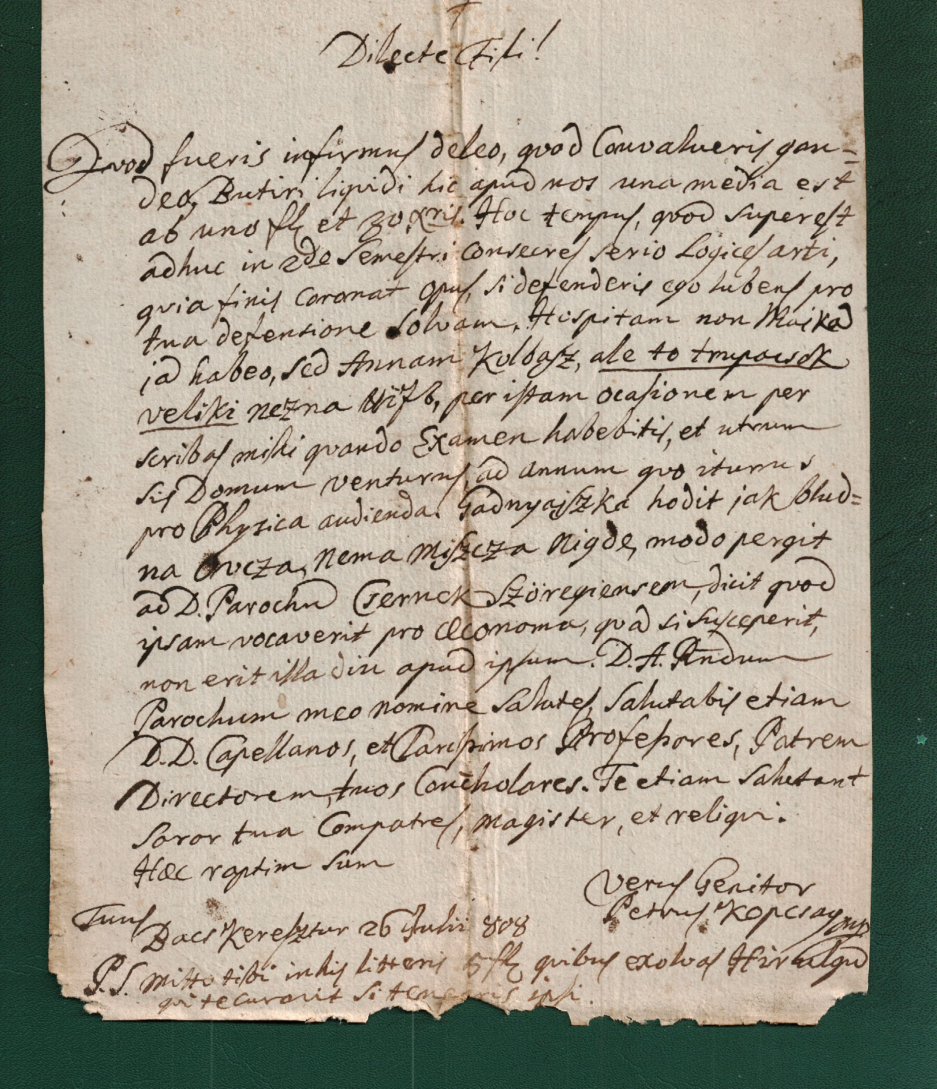 Dilecte Fili!
Quod fueris infirmus doleo, quod Convalueris gau=
deo, Butiri liquidi hic apud nos una media est
ab uno fl et 30 xris. Hoc tempus, quod superest
adhuc in 2do Semestri consecres serio Logices arti,
quia finis coronat opus, si defenderis ego lubens pro
tua defensione solvam. Hospitam non
jd habeo, sed Annam Kolbasz, ale to
veliki nezna per istam ocasionem per
scribas mihi quando Examen habebitis, et utrum
sis Domum venturus, ad annum quo iturus
pro Physica audienda. hodit jak blud=
na Ovcza, nema Miszcza nigde, modo pergit
ad D. Parochū Csernek Szöregiensem, dicit quod
ipsam vocaverit pro Œconoma, quā si susceperit,
non erit illa diu apud ipsum. D. A. Rndum
Parochum meo nomine salutes, salutabis etiam
D.D. Capellanos, et Professores, Patrem
Directorem, tuos Te etiam salutant
soror tua Compatres, magister, et reliqui.
Hæc raptim sum
Tuus
Verus Genitor
Petrus Kopcsay mp
Bacs Keresztur 26 Julii 808
P.S. mitto tibi in his litteris 5 fl quibus exolvas
qui te curavit si ipsi.